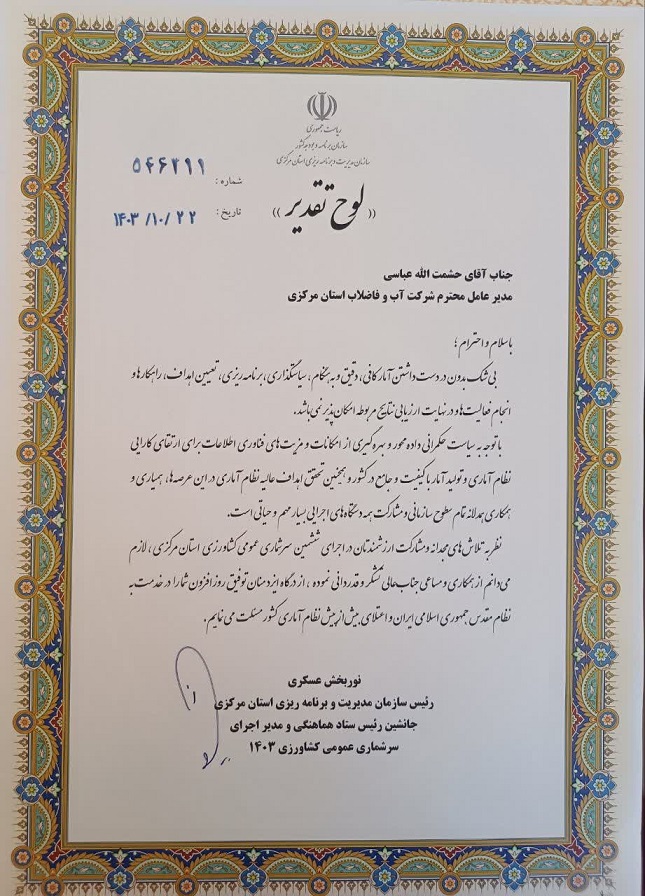 ریاست جمهوری
سازمان برنامه و بودجه کشور
سازمان مدیریت و برنامه ریزی استان مرکزی
شماره : ۵۴۶۲۹۹
تاریخ : ۱۴۰۳/۱۰/۲۲
((لوح تقدیر))
جناب آقای حشمت الله عباسی
مدیر عامل محترم شرکت آب و فاضلاب استان مرکزی
با سلام و احترام ؛
بی شک بدون در دست داشتن آمار کافی، دقیق و به هنگام، سیاستگذاری، برنامه ریزی، تعیین اهداف، راهکارها و
انجام فعالیت ها و در نهایت ارزیابی نتایج مربوطه امکان پذیر نمی باشد.
با توجه به سیاست حکمرانی داده محور و بهره گیری از امکانات و مزیت های فناوری اطلاعات برای ارتقای کارایی
نظام آماری و تولید آمار با کیفیت و جامع در کشور و همچنین تحقق اهداف عالیه نظام آماری در این عرصه ها، همیاری و
همکاری همدلانه تمام سطوح سازمانی و مشارکت همه دستگاه های اجرایی بسیار مهم و حیاتی است.
نظر به تلاش های مجدانه و مشارکت ارزشمندتان در اجرای ششمین سرشماری عمومی کشاورزی استان مرکزی، لازم
می دانم از همکاری و مساعی جناب عالی تشکر و قدردانی نموده ، از درگاه ایزد منان توفیق روز افزون شما را در خدمت به
نظام مقدس جمهوری اسلامی ایران و اعتلای بیش از پیش نظام آماری کشور مسئلت می نمایم.
نوربخش عسکری
رئیس سازمان مدیریت و برنامه ریزی استان مرکزی
جانشین رئیس ستاد هماهنگی و مدیر اجرای
سرشماری عمومی کشاورزی ۱۴۰۳